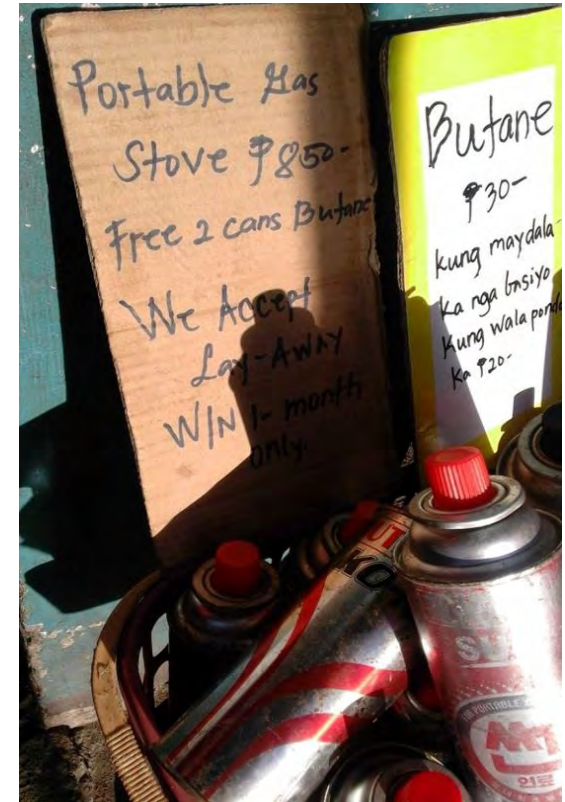 Portable Gas
Stove ₱850-
Free 2 cans Butane
We Accept
Lay-Away
W/N 1-month
only.
Butane
₱30-
kung maydala-
ka nga basiyo
kung wala pondo
ka ₱20-
연료